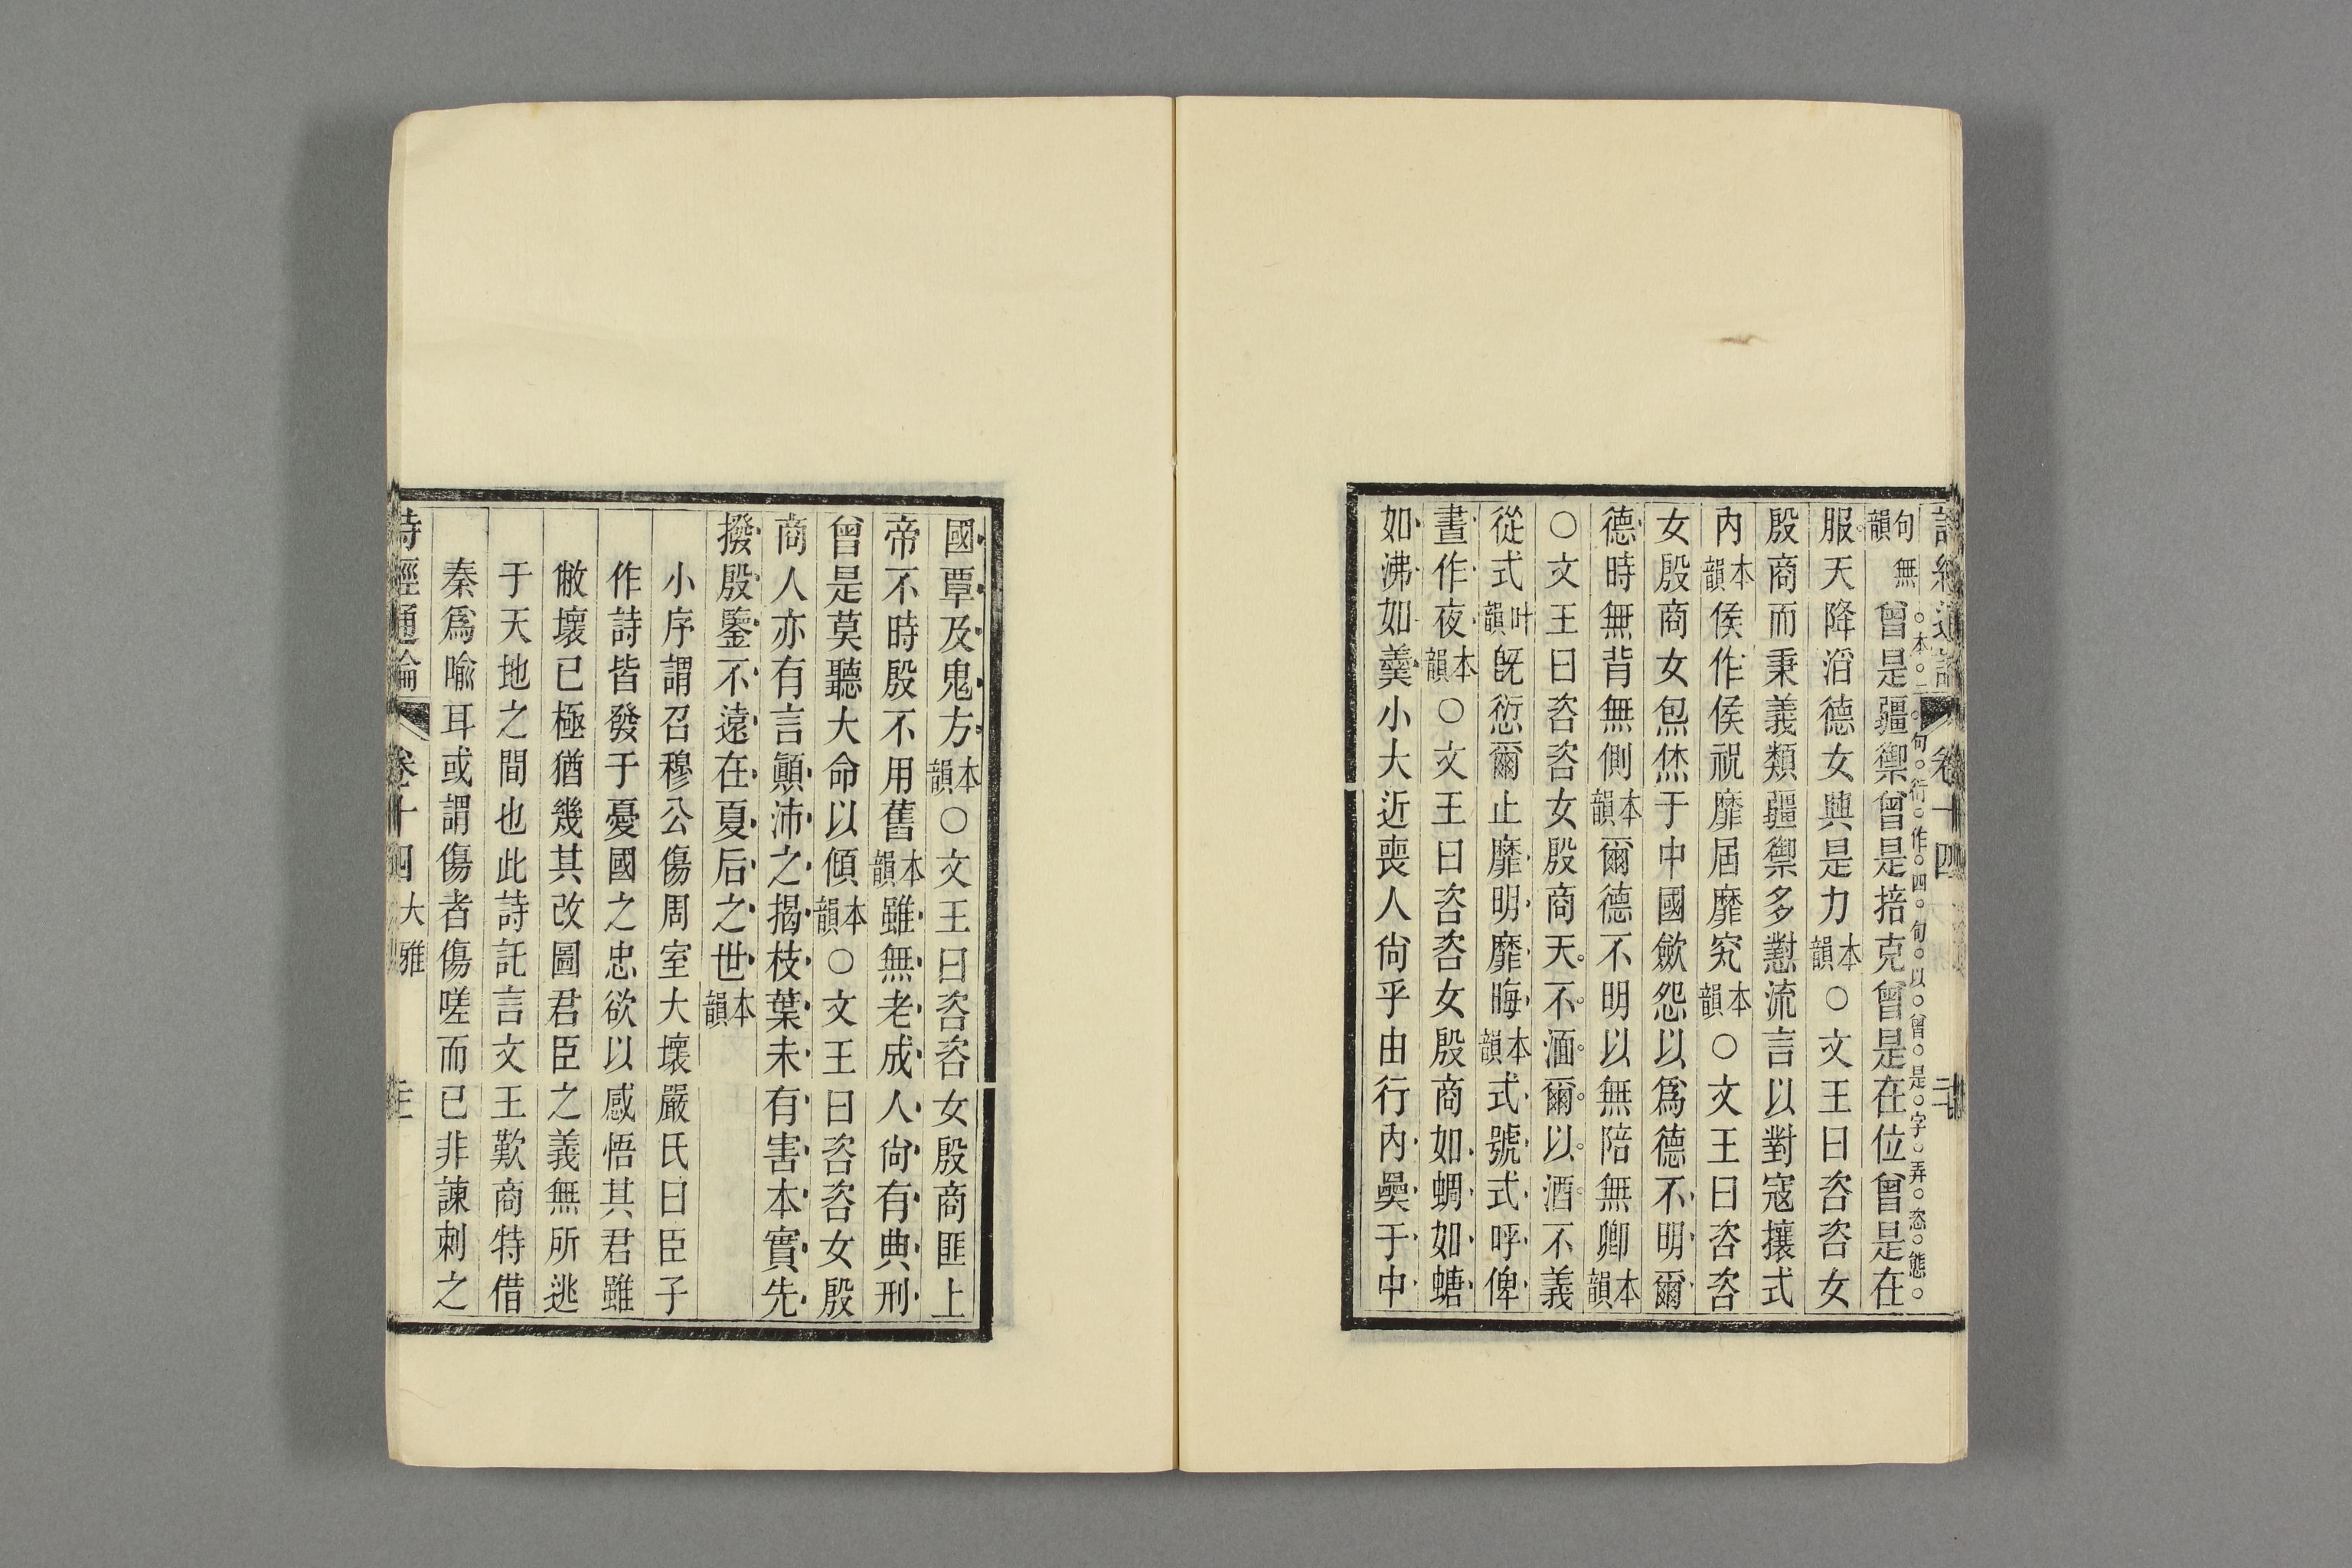 詩經通論 卷十四
本二句衍作四句以曾是字弄恣態
句無韻曾是彊禦曾是掊克曾是在位曾是在
服天降滔德女興是力本韻○文王曰咨咨女
殷商而秉義類彊禦多懟流言以對寇攘式
內本韻侯作侯祝靡屆靡究本韻○文王曰咨咨
女殷商女炰烋于中國斂怨以爲德不明爾
德時無背無側本韻爾德不明以無陪無卿本韻
○文王曰咨咨女殷商天不湎爾以酒不義
從式叶韻旣愆爾止靡明靡晦本韻式號式呼俾
晝作夜本韻○文王曰咨咨女殷商如蜩如螗
如沸如羹小大近喪人尙乎由行內奰于中
國覃及鬼方本韻○文王曰咨咨女殷商匪上
帝不時殷不用舊本韻雖無老成人尙有典刑
曾是莫聽大命以傾本韻○文王曰咨咨女殷
商人亦有言顚沛之揭枝葉未有害本實先
撥殷鑒不遠在夏后之世本韻
小序謂召穆公傷周室大壞嚴氏曰臣子
作詩皆發于憂國之忠欲以感悟其君雖
敝壞已極猶幾其改圖君臣之義無所逃
于天地之間也此詩託言文王歎商特借
秦爲喩耳或謂傷者傷嗟而已非諫刺之
詩經通論 卷十四 大雅